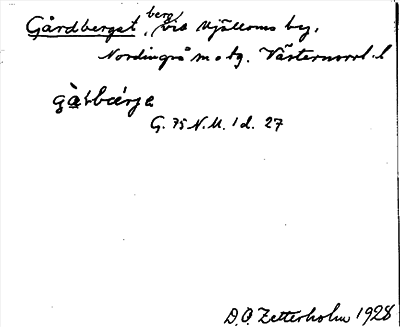 Gårdberget, berg vid Mjälloms by,
Nordingrå sn o tg. Västernorrl. l
gàrbærje
G. 75 N.M. 1 d. 27
D.O. Zetterholm 1928